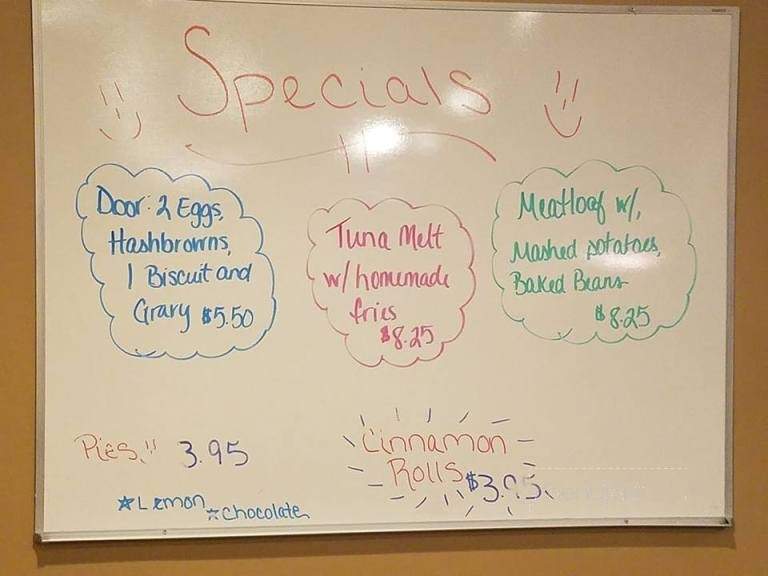 Specials
Door: 2 Eggs,
Hashbrowns,
1 Biscuit and
Gravy $5.50
Tuna Melt
w/ homemade
fries
$8.25
Meatloaf w/,
Mashed potatoes,
Baked Beans
$8.25
Pies 3.95
Lemon
Chocolate
Cinnamon
Rolls $3.95